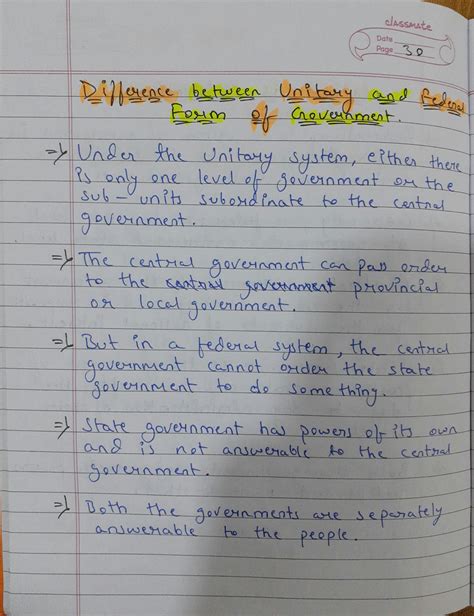 classmate
Date
Page 30
Difference between Unitary and Federal
Form of Government.
=> Under the Unitary system, either there
is only one level of government or the
sub-units subordinate to the central
government.
=> The central government can pass order
to the central government provincial
or local government.
=> But in a federal system, the central
government cannot order the state
government to do something.
=> State government has powers of its own
and is not answerable to the central
government.
=> Both the governments are separately
answerable to the people.